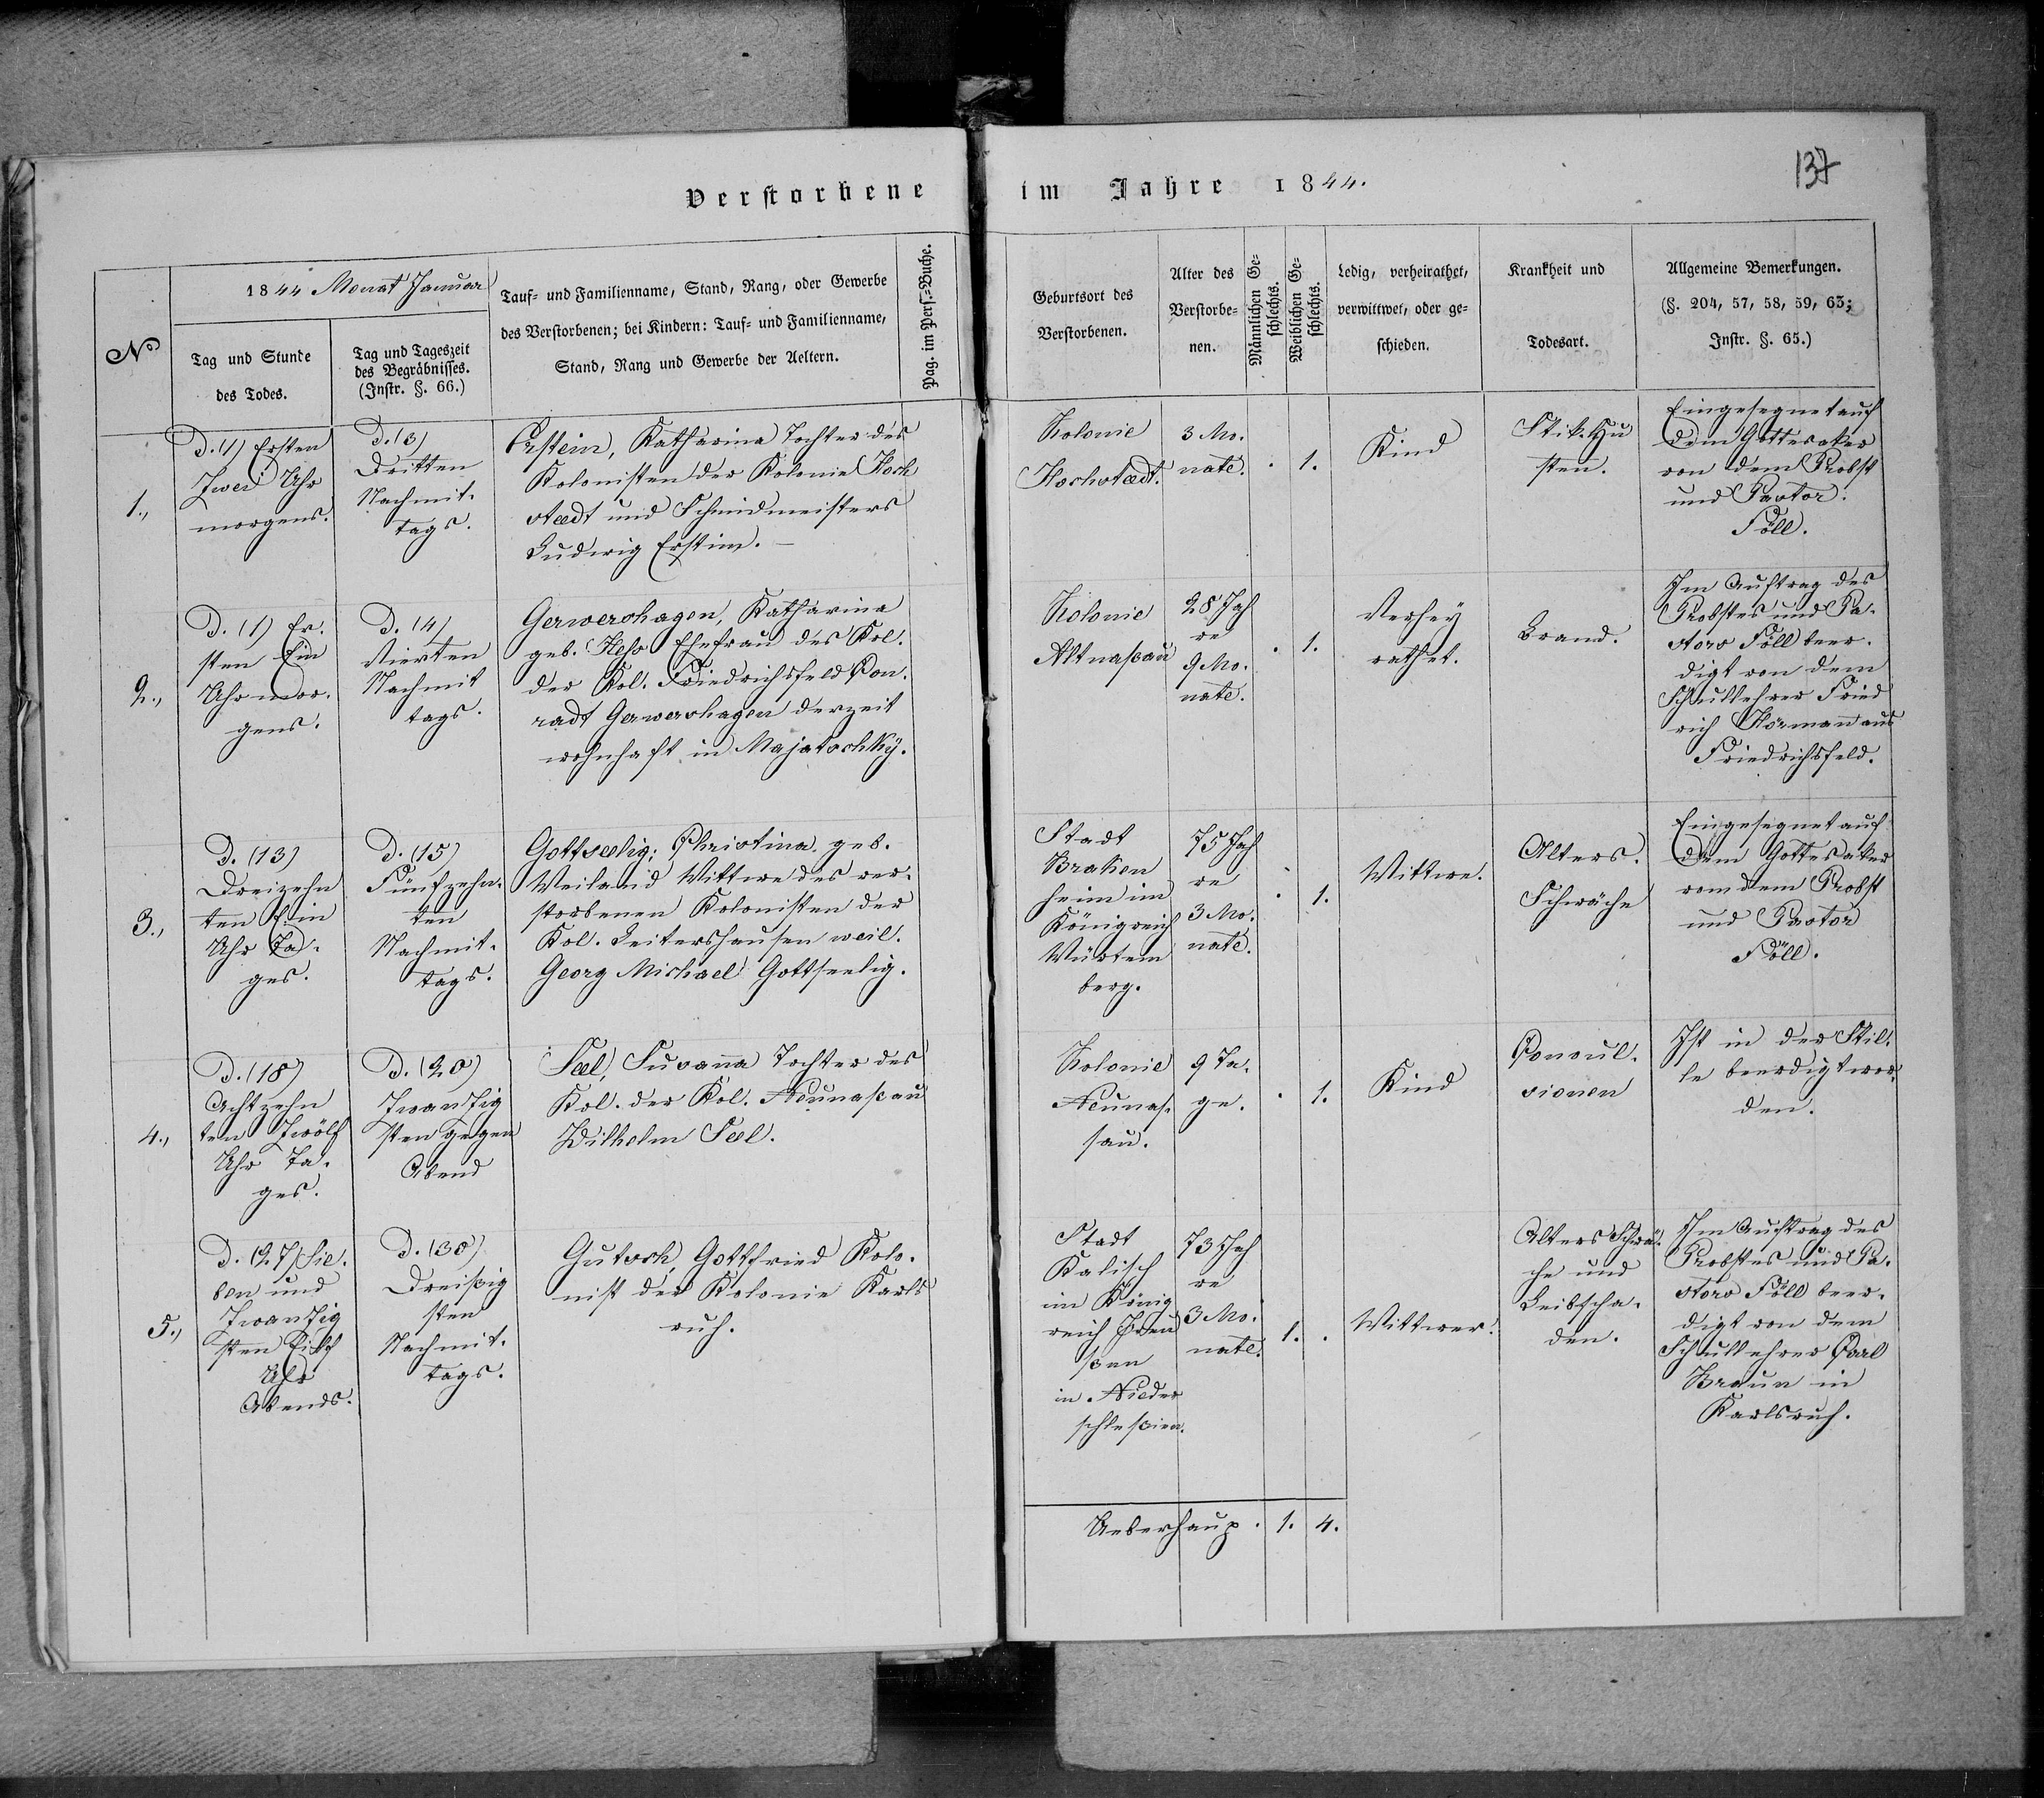 137
Verstorbene im Jahre 1844.
N°
1844 Monat Januar
Tag und Stunde
des Todes.
Tag und Tageszeit
des Begräbnisses.
(Instr. §. 66.)
Tauf- und Familienname, Stand, Rang, oder Gewerbe
des Verstorbenen; bei Kindern: Tauf- und Familienname,
Stand, Rang und Gewerbe der Aeltern.
Pag. im Pers.-Buche.
Geburtsort des
Verstorbenen.
Alter des
Verstorbe-
nen.
Männlichen Ge-
schlechts.
Weiblichen Ge-
schlechts.
Ledig, verheirathet,
verwittwet, oder ge-
schieden.
Krankheit und
Todesart.
Allgemeine Bemerkungen.
(§. 204, 57, 58, 59, 63;
Instr. §. 65.)
1.,
D. (1) Ersten
Zwei Uhr
morgens.
D. (3)
Dritten
Nachmit-
tags.
Erstein, Katharina Tochter des
Kolonisten der Kolonie Hoch
staedt und Schmidmeisters
Ludwig Erstein.
Kolonie
Hochstaedt.
3 Mo.
nate.
. 1.
Kind
Stik-Hu
sten.
Eingesegnet auf
dem Gottesaker
von dem Probst
und Pastor
Föll.
2.,
D. (1) Er-
sten Ein
Uhr mor-
gens.
D. (4)
Vierten
Nachmit
tags.
Gerwershagen, Katharina
geb. Hess Ehefrau des Kol.
der Kol. Friedrichsfeld Con-
radt Gerwershagen derzeit
wohnhaft in Majatschky.
Kolonie
Altnassau
28 Jah
re
9 Mo.
nate.
. 1.
Verhey
rathet.
Brand.
Im Auftrag des
Probstes und Pa-
stors Föll beer-
digt von dem
Schullehrer Fried
rich Hörmann aus
Friedrichsfeld.
3.,
D. (13)
Dreizehn
ten Ein
Uhr Ta-
ges.
D. (15)
Fünfzehn-
ten
Nachmit-
tags.
Gottseelig; Christina geb.
Weiland Wittwe des ver-
storbenen Kolonisten der
Kol. Leitershausen weil.
Georg Michael Gottseelig.
Stadt
Braken
heim im
Königreich
Würtem
berg.
75 Jah
re
3 Mo.
nate.
. 1.
Wittwe.
Alters-
Schwäche
Eingesegnet auf
dem Gottesaker
von dem Probst
und Pastor
Föll.
4.,
D. (18)
Achtzehn
ten Zwölf
Uhr Ta-
ges.
D. (20)
Zwanzig
sten gegen
Abend
Seel, Susanna Tochter des
Kol. der Kol. Neunassau
Wilhelm Seel.
Kolonie
Neunas-
sau.
9 Ta-
ge.
. 1.
Kind
Convul-
sionen
Ist in der Stil-
le beerdigt wor-
den.
5.,
D. (27) Sie-
ben und
Zwanzig
sten Eilf
Uhr
Abends.
D. (30)
Dreißig
sten
Nachmit-
tags.
Gutsch, Gottfried Kolo-
nist der Kolonie Karls
ruh.
Stadt
Kalisch
im König
reich Preu
ßen
in Nieder
schlesien.
73 Jah
re
3 Mo.
nate.
1. .
Wittwer.
Alters Schwä-
che und
Leibscha-
den.
Im Auftrag des
Probstes und Pa-
stors Föll beer-
digt von dem
Schullehrer Carl
Braun in
Karlsruh.
Ueberhaup. 1. 4.